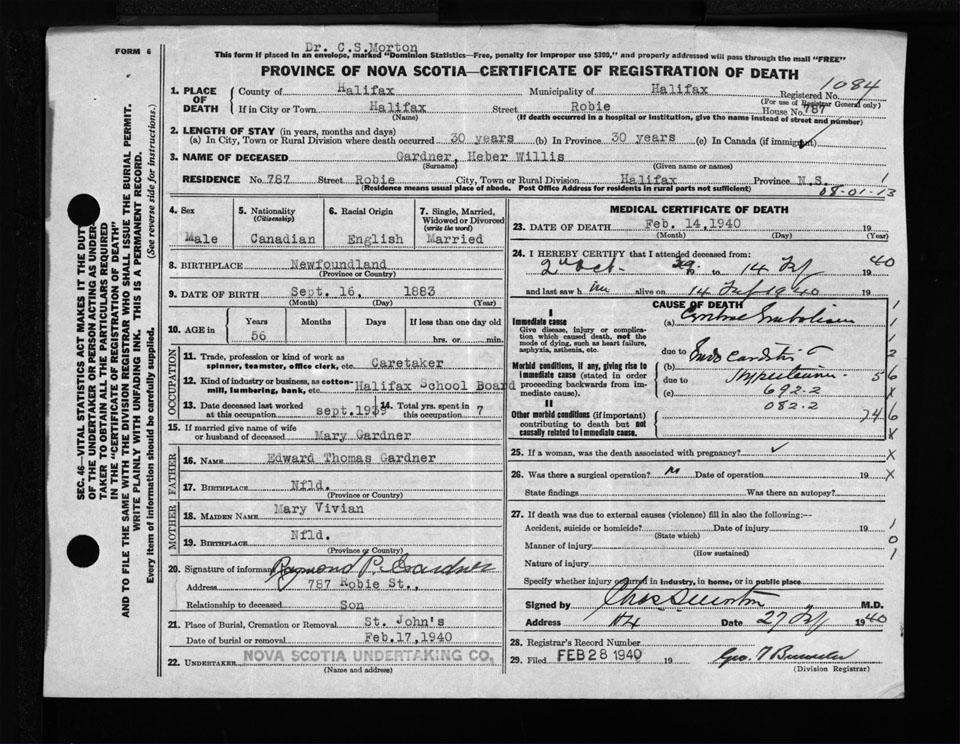 FORM 6
Dr. C.S.Morton
This form if placed in an envelope, marked "Dominion Statistics—Free, penalty for improper use $300," and properly addressed will pass through the mail "FREE"
PROVINCE OF NOVA SCOTIA—CERTIFICATE OF REGISTRATION OF DEATH
1084
1. PLACE OF DEATH
County of Halifax Municipality of Halifax Registered No.
(For use of Registrar General only)
If in City or Town Halifax Street Robie House No. 787
(Name) (If death occurred in a hospital or institution, give the name instead of street and number)
2. LENGTH OF STAY (in years, months and days)
(a) In City, Town or Rural Division where death occurred 30 years (b) In Province 30 years (c) In Canada (if immigrant)
3. NAME OF DECEASED Gardner, Heber Willis
(Surname) (Given name or names)
RESIDENCE No. 787 Street Robie City, Town or Rural Division Halifax Province N.S. 1
(Residence means usual place of abode. Post Office Address for residents in rural parts not sufficient)
08-01-13
4. Sex Male
5. Nationality (Citizenship) Canadian
6. Racial Origin English
7. Single, Married, Widowed or Divorced (write the word) Married
8. BIRTHPLACE Newfoundland
(Province or Country)
9. DATE OF BIRTH Sept. 16, 1883
(Month) (Day) (Year)
10. AGE in Years Months Days If less than one day old
56 hrs. or min.
OCCUPATION
11. Trade, profession or kind of work as spinner, teamster, office clerk, etc. Caretaker
12. Kind of industry or business, as cotton-mill, lumbering, bank, etc. Halifax School Board
13. Date deceased last worked at this occupation sept.1939
14. Total yrs. spent in this occupation 7
15. If married give name of wife or husband of deceased Mary Gardner
FATHER
16. NAME Edward Thomas Gardner
17. BIRTHPLACE Nfld.
(Province or Country)
MOTHER
18. MAIDEN NAME Mary Vivian
19. BIRTHPLACE Nfld.
(Province or Country)
20. Signature of informant Raymond P. Gardner
Address 787 Robie St.,
Relationship to deceased Son
21. Place of Burial, Cremation or Removal St. John's
Date of burial or removal Feb.17,1940
22. UNDERTAKER NOVA SCOTIA UNDERTAKING CO.
(Name and address)
MEDICAL CERTIFICATE OF DEATH
23. DATE OF DEATH Feb. 14,1940 19
(Month) (Day) (Year)
24. I HEREBY CERTIFY that I attended deceased from:
2 Oct. 39 19 to 14 Feb 1940
and last saw h im alive on 14 Feb 1940 19
CAUSE OF DEATH
I
Immediate cause (a) Embolism
Give disease, injury or complication which caused death, not the mode of dying, such as heart failure, asphyxia, asthenia, etc.
due to
Morbid conditions, if any, giving rise to immediate cause (stated in order proceeding backwards from immediate cause).
(b) Endocarditis
due to
(c) 692.2
082.2
II
Other morbid conditions (if important) contributing to death but not causally related to immediate cause.
25. If a woman, was the death associated with pregnancy?
26. Was there a surgical operation? Date of operation 19
State findings Was there an autopsy?
27. If death was due to external causes (violence) fill in also the following:—
Accident, suicide or homicide? Date of injury 19
(State which)
Manner of injury
(How sustained)
Nature of injury
Specify whether injury occurred in industry, in home, or in public place
Signed by Chas S Morton M.D.
Address Hfx Date 27 Feb 1940
28. Registrar's Record Number
29. Filed FEB 28 1940 19
(Division Registrar)
SEC. 46—VITAL STATISTICS ACT MAKES IT THE DUTY OF THE UNDERTAKER OR PERSON ACTING AS UNDERTAKER TO OBTAIN ALL THE PARTICULARS REQUIRED IN THE "CERTIFICATE OF REGISTRATION OF DEATH" AND TO FILE THE SAME WITH THE DIVISION REGISTRAR WHO SHALL ISSUE THE BURIAL PERMIT.
WRITE PLAINLY WITH UNFADING INK. THIS IS A PERMANENT RECORD.
Every item of information should be carefully supplied. (See reverse side for instructions.)